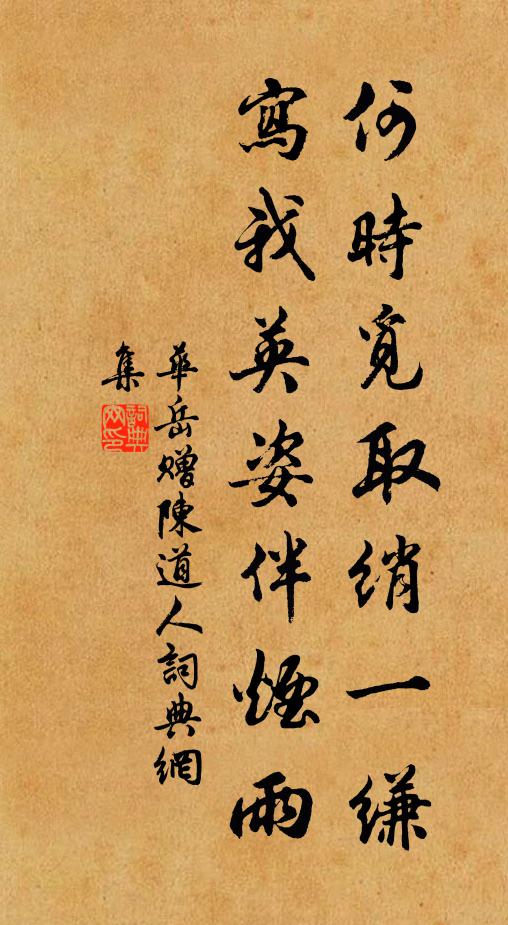 何時覓取綃一縑
寫我英姿伴煙雨
華岳贈陳道人詞典網
集
詞典
网印